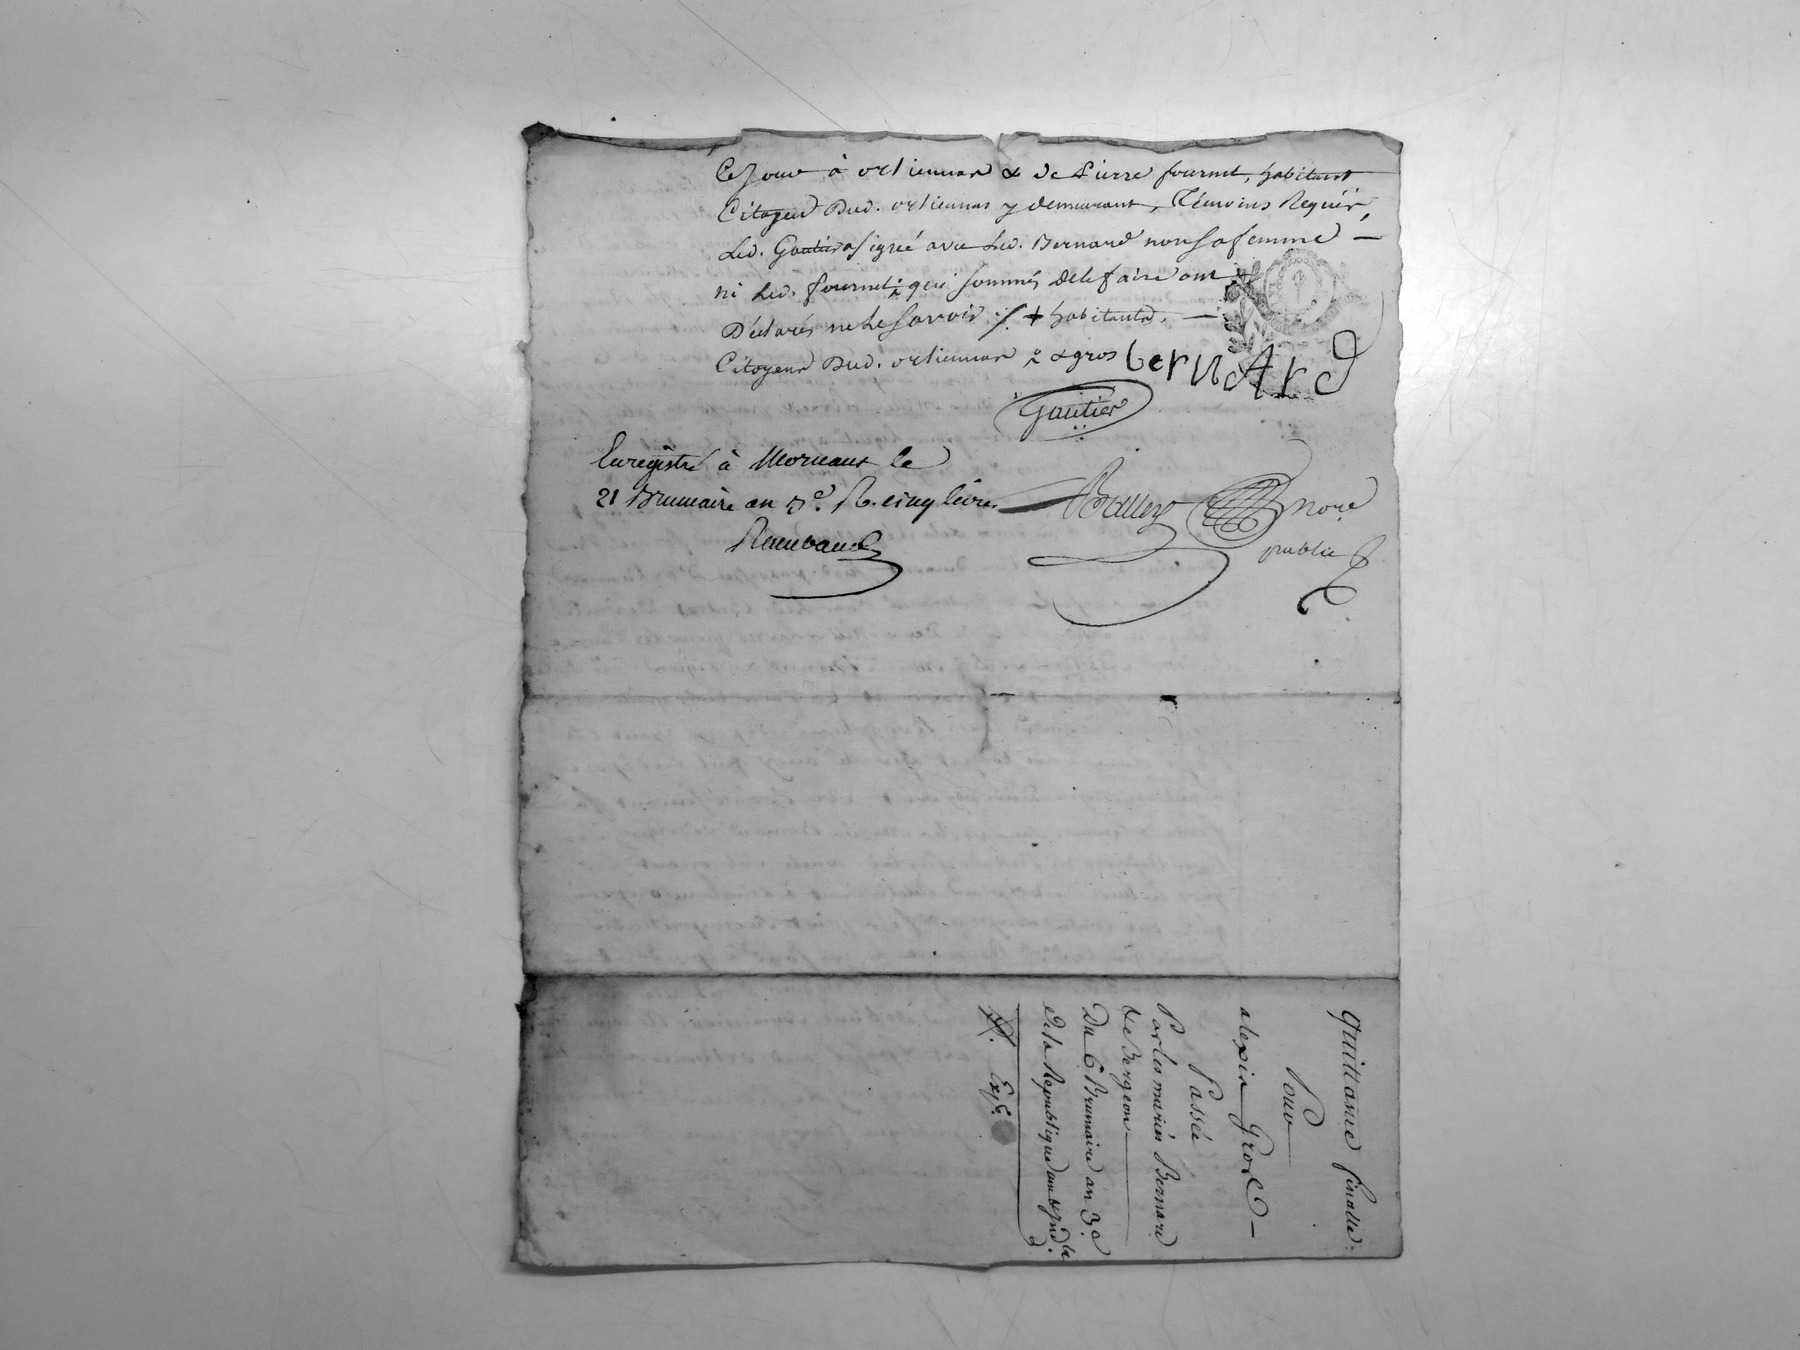 Ce jour à orliennas & de Pierre fournet, habitant
Citoyen Dud. orliennas y demeurant, Témoins Requis,
Led. Gautier a signé avec Led. Bernard non sa femme —
ni Led. fournet qui sommés de le faire ont
Déclarés ne le savoir ./. + habitants. —
Citoyens Dud. orliennas & gros bernArd
Gautier
Enregistré à Mornant le
21 Brumaire an 3e. R. cinq livres
Raimbaud
nore
public
Quittance finalle
Pour
alexis Gros —
Passée
Par les mariés Bernard
& Bergeon —
Du 6 Brumaire an 3e
de la Republique
Exp.